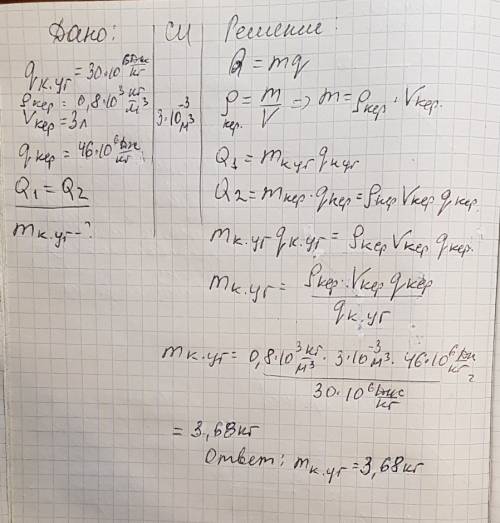 Дано:
q к.уг = 30·10⁶ Дж/кг
ρкер = 0,8·10³ кг/м³
Vкер = 3л
qкер = 46·10⁶ Дж/кг
Q₁ = Q₂
mк.уг - ?
СИ
3·10⁻³ м³
Решение:
Q = mq
ρкер. = m/V => m = ρкер · Vкер.
Q₁ = mк.уг qк.уг
Q2 = mкер · qкер = ρкер Vкер qкер.
mк.уг qк.уг = ρкер Vкер qкер.
mк.уг = ρкер · Vкер qкер / qк.уг
mк.уг = 0,8·10³ кг/м³ · 3·10⁻³ м³ · 46·10⁶ Дж/кг / 30·10⁶ Дж/кг =
= 3,68 кг
Ответ: mк.уг = 3,68 кг